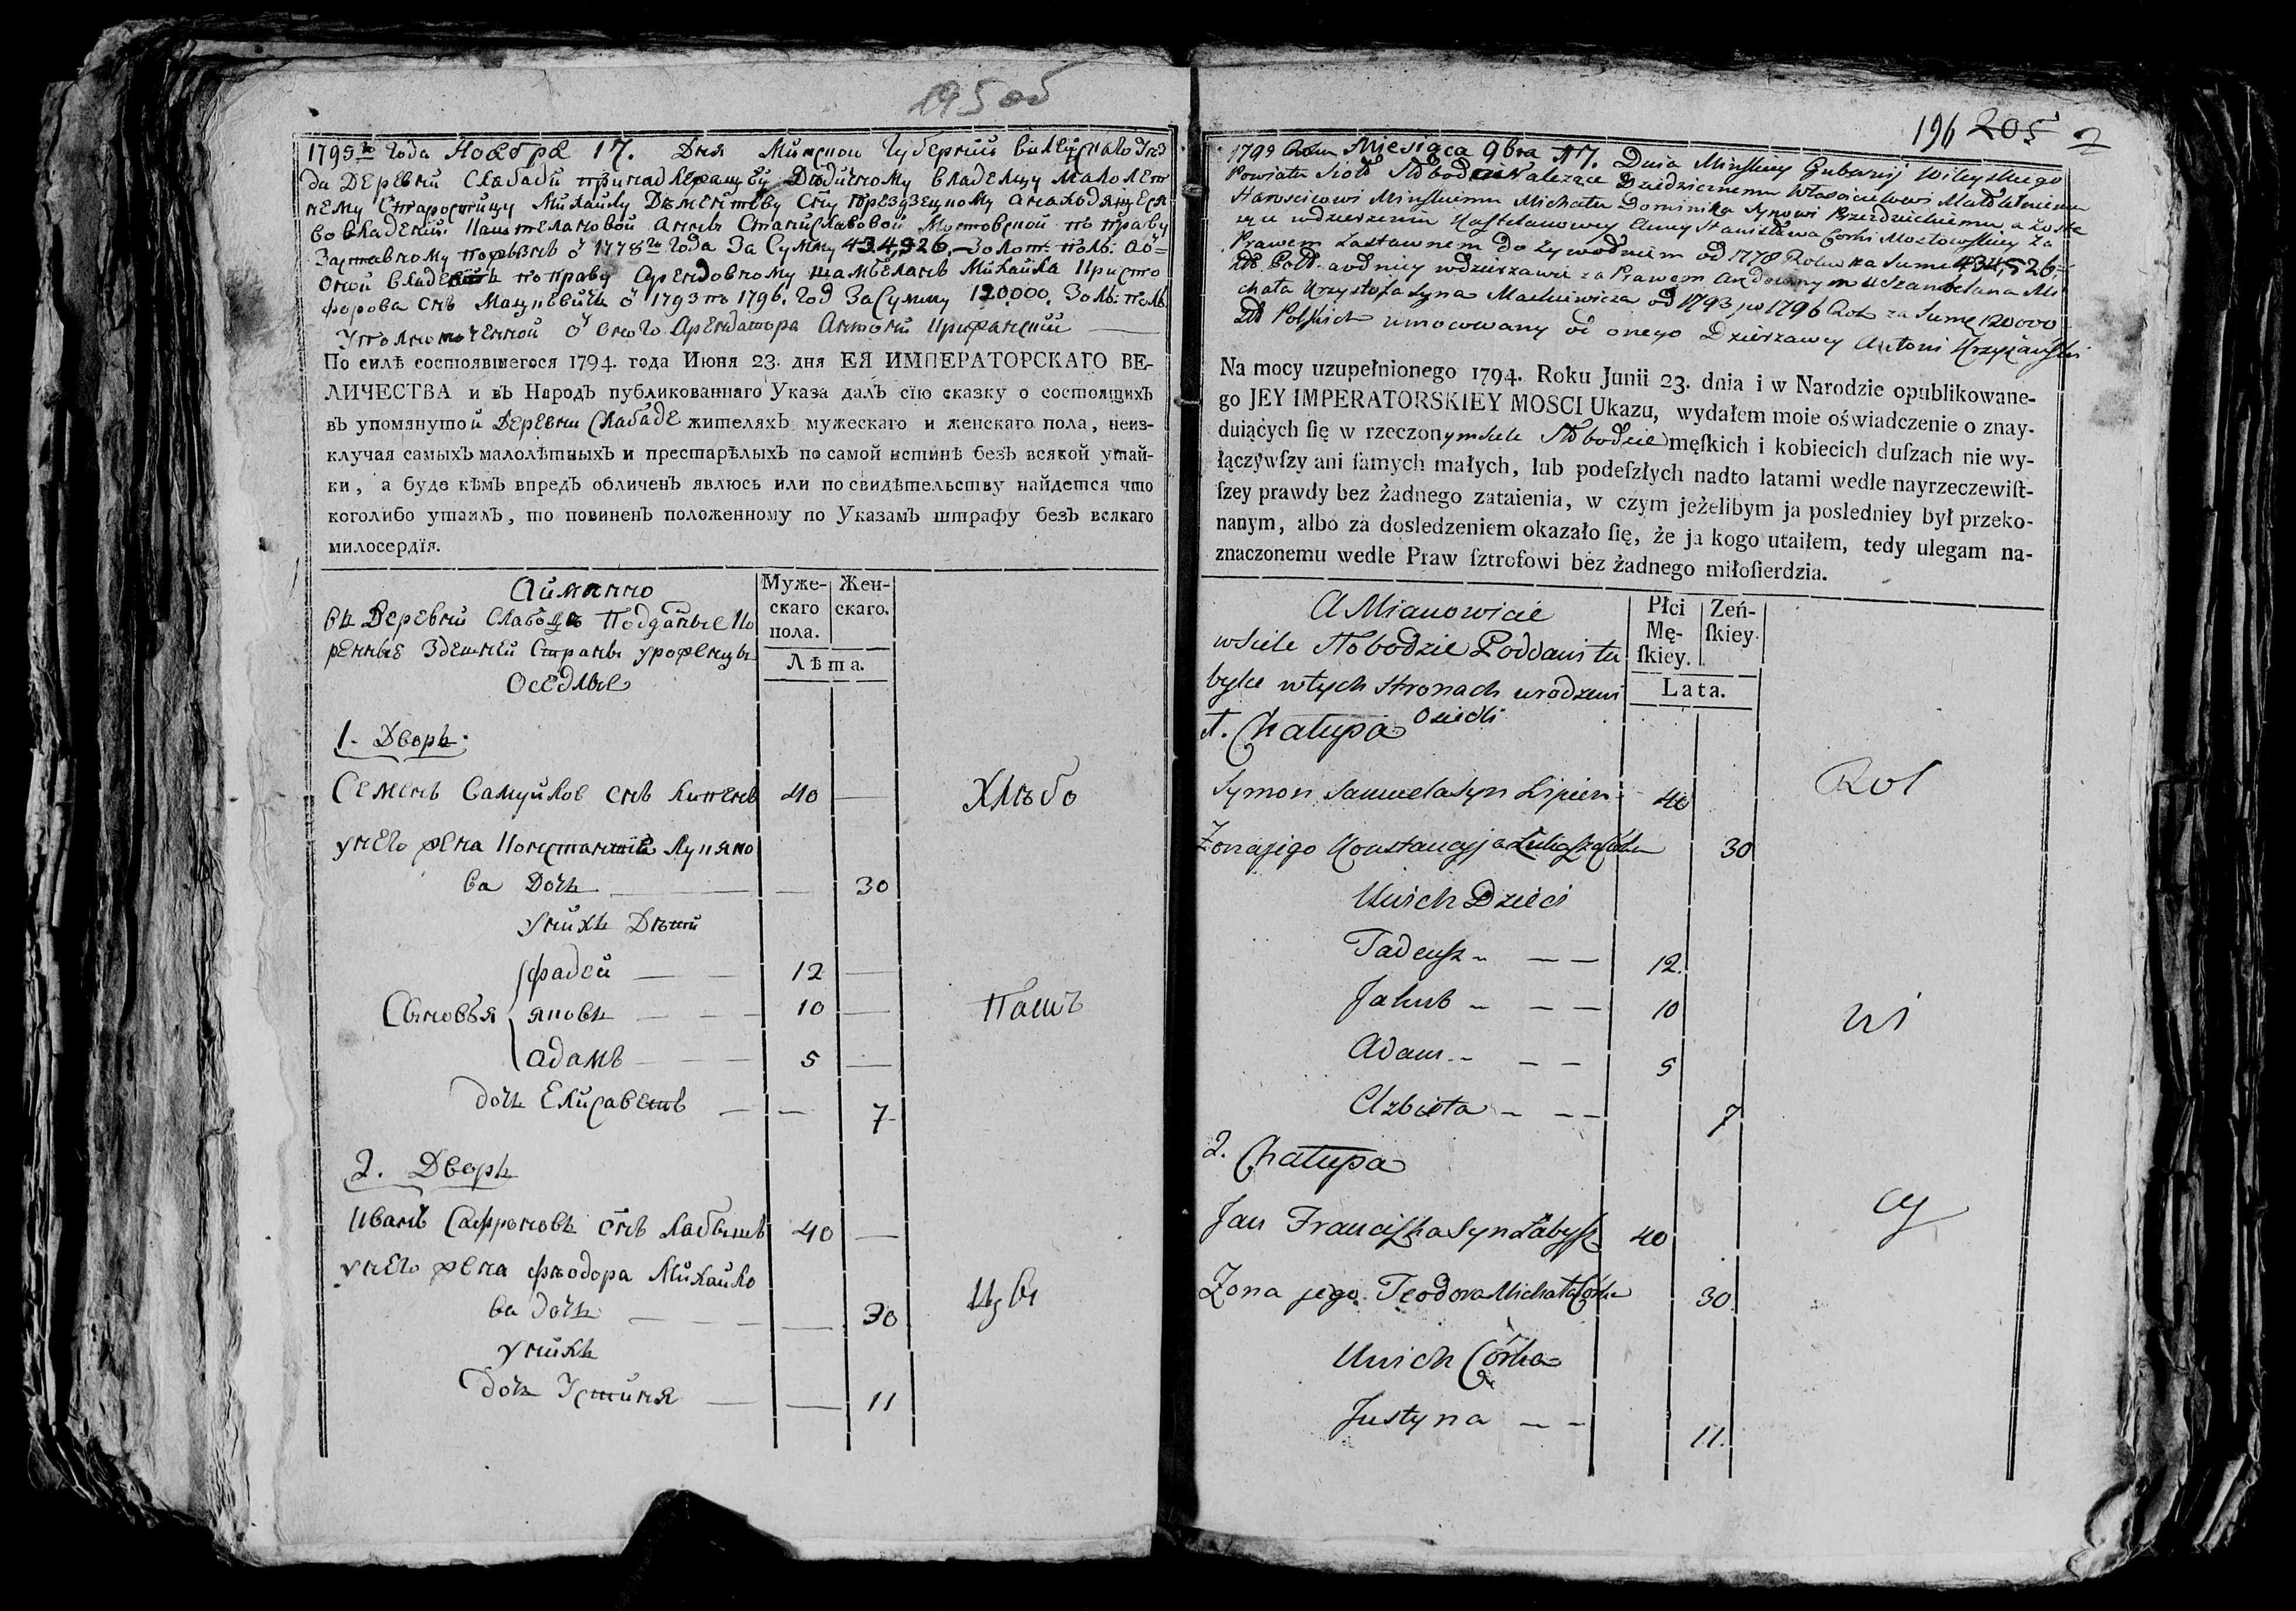 195 об
1795го Года Ноября 17. Дня Минской Губернии Вилейского Уез
да Деревни Слабады принадлежащей Дедичному владельцу малолет
нему Старостицу Михайлу Дементеву сну Презд̾зецкому а находящейся
во владении Каштеляновой Анны Станиславовой Мостовской по праву
Заставному пожизне с 1778го Года За Сумму 434,526. Золот: поль: а в
оной владении по праву Арендовному шамбеляна Михайла Кристо
форова сна Мацкевича с 1793 по 1796. Год За Сумму 120000. Золь: поль
Уполномоченной от оного Арендатора Антони Крижанский
По силѣ состоявшегося 1794. года Июня 23. дня ЕЯ ИМПЕРАТОРСКАГО ВЕ-
ЛИЧЕСТВА и въ Народъ публикованнаго Указа далъ сїю сказку о состоящихъ
въ упомянутой Деревни Слабаде жителяхъ мужескаго и женскаго пола, неиз-
ключая самыхъ малолѣтныхъ и престарѣлыхъ по самой истинѣ безъ всякой утай-
ки, а буде кѣмъ впредь обличенъ явлюсь или по свидѣтельству найдется что
коголибо утаилъ, то повиненъ положенному по Указамъ штрафу безъ всякаго
милосердїя.
Аймянно
въ Деревни Слабоде Подданые Ко
ренные Здешней Страны уроженцы
Оседлые
Муже-
скаго
пола.
Жен-
скаго.
Лѣта.
1. Дворъ.
Семенъ Самуйлов снъ Липень 40 —
унего жена Констанция Лукяно
ва Дочь — — 30
уних Дети
Фадей — — 12 —
Сыновья Яковъ — — 10 —
Адамъ — — 5 —
дочь Елисавета — — 7
2. Дворъ
Иванъ Сафроновъ снъ Лабышъ 40 —
унего жена Феодора Михайло
ва дочь — — — 30
унихъ
дочь Устиня — — 11
Хлебо
Паш
цы
196 205 2
1795 Roku Miesiąca 9bra 17. Dnia Minskiey Gubernij Wileyskiego
Powiatu Sioło Słoboda Należące Dziedzicznemu Właścicielowi Małoletniemu
Starościcowi Minskiemu Michału Dominika Synowi Przezdzieckiemu, a
w dzierzeniu Kasztelanowey Anny Stanisława Corki Mostowskiey Za
Prawem Zastawnem do żywodniem od 1778 Roku za Sumę 434,526.
złł. Pols. a od niey w dzierzawie za Prawem Arędownym u Szambelana Mi
chała Krzysztofa Syna Mackiewicza od 1793 po 1796 Rok za Sumę 120000
złł Polskich umocowany od onego Dzierzawcy Antoni Krzyżański
Na mocy uzupełnionego 1794. Roku Junii 23. dnia i w Narodzie opublikowane-
go JEY IMPERATORSKIEY MOSCI Ukazu, wydałem moie oświadczenie o znay-
duiących ſię w rzeczonym siele Słobodzie męſkich i kobiecich duſzach nie wy-
łączywſzy ani ſamych małych, lub podeſzłych nadto latami wedle nayrzeczewiſt-
ſzey prawdy bez żadnego zataienia, w czym jeżelibym ja posledniey był przeko-
nanym, albo za dosledzeniem okazało ſię, że ja kogo utaiłem, tedy ulegam na-
znaczonemu wedle Praw ſztrofowi bez żadnego miłoſierdzia.
A Mianowicie
w Siele Słobodzie Poddani tu
bylce w tych Stronach urodzeni
Osiedli
Płci
Mę-
ſkiey.
Zeń-
ſkiey.
Lata.
1. Chałupa
Symon Samuela Syn Lipień 40
Żona jego Konstancyja Łukasza Córka 30
U nich Dzieci
Tadeusz — — 12.
Jakub — — 10
Adam — — 5
Elzbieta — — 7
2. Chałupa
Jan Franciszka Syn Łabysz 40
Żona jego Teodora Michała Córka 30
U nich Córka
Justyna — — 11.
Rol
ni
cy